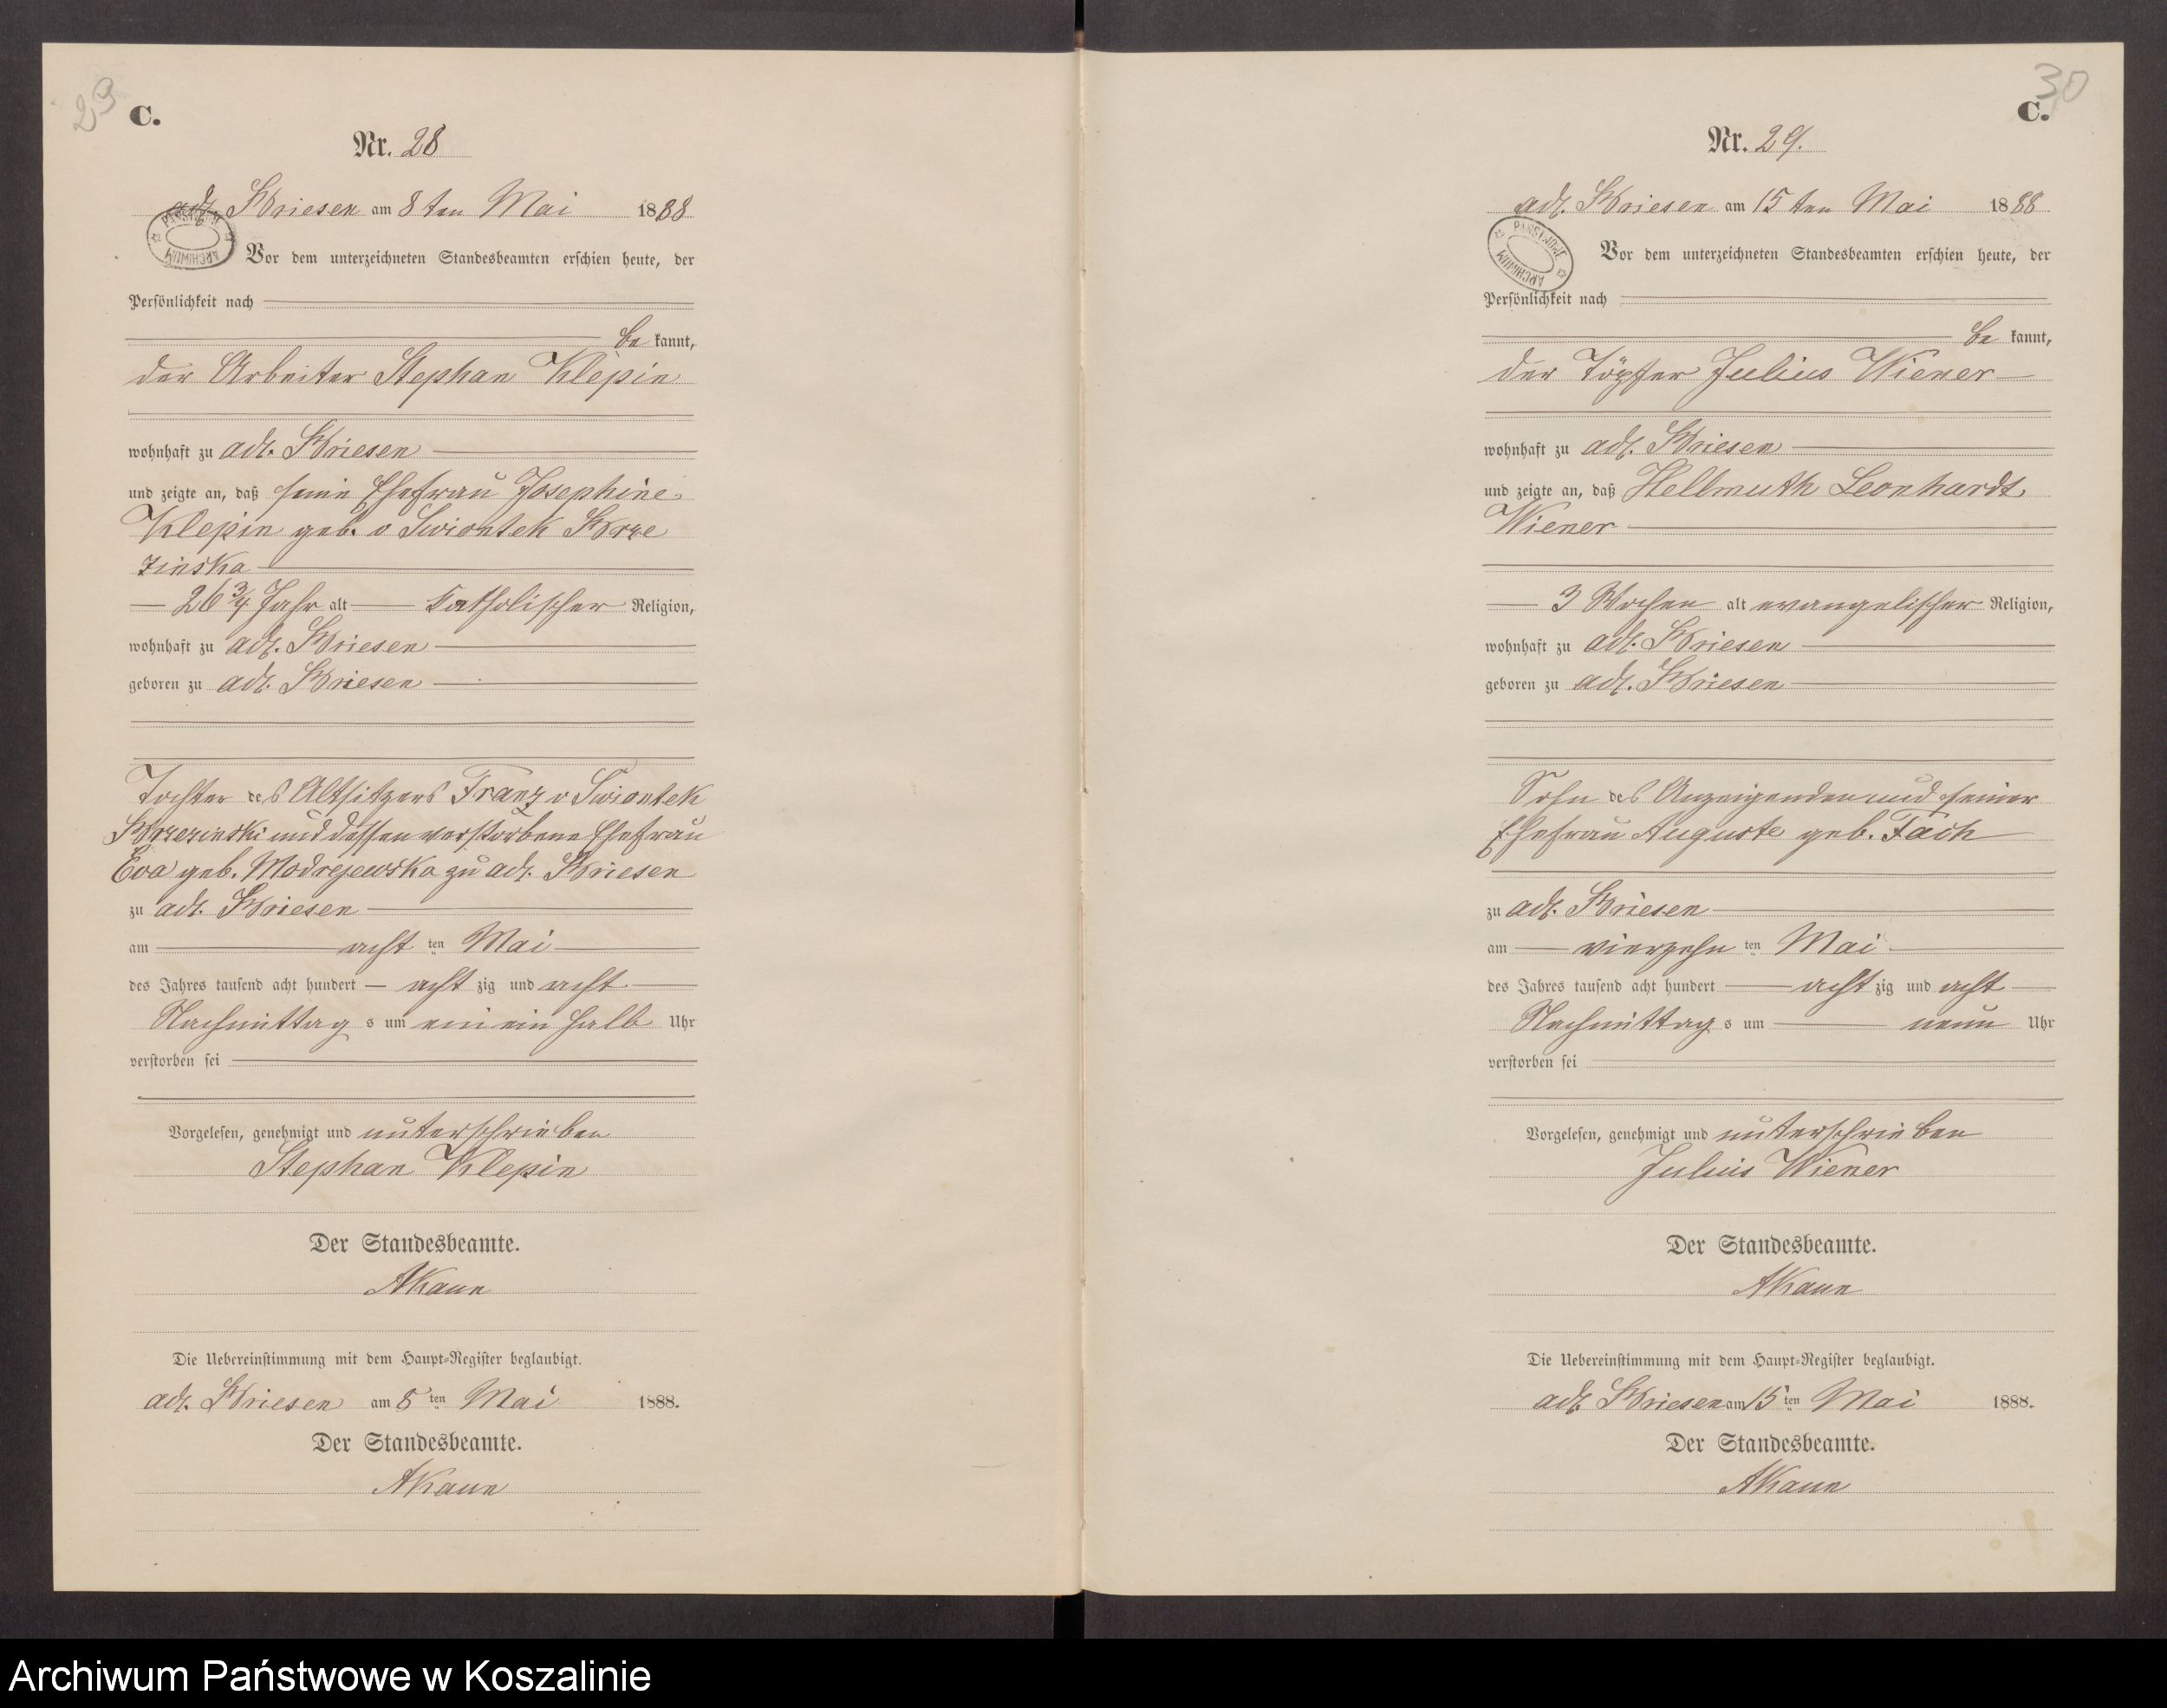 29
C.
Nr. 28
adl. Briesen am 8 ten Mai 1888
PAŃSTWOWE ARCHIWUM
Vor dem unterzeichneten Standesbeamten erschien heute, der
Persönlichkeit nach
be kannt,
der Arbeiter Stephan Klepin
wohnhaft zu adl. Briesen
und zeigte an, daß seine Ehefrau Josephine
Klepin geb. v Swiontek Brze
zinska
26 3/4 Jahr alt katholischer Religion,
wohnhaft zu adl. Briesen
geboren zu adl. Briesen
Tochter des Altsitzers Franz v Swiontek
Brzezinski und dessen verstorbene Ehefrau
Eva geb. Modrejewska zu adl. Briesen
zu adl. Briesen
am acht ten Mai
des Jahres tausend acht hundert acht zig und acht
Nachmittag s um ein ein halb Uhr
verstorben sei
Vorgelesen, genehmigt und unterschrieben
Stephan Klepin
Der Standesbeamte.
AKaun
Die Uebereinstimmung mit dem Haupt-Register beglaubigt.
adl. Briesen am 8 ten Mai 1888.
Der Standesbeamte.
AKaun
30
C.
Nr. 29.
adl. Briesen am 15 ten Mai 1888
PAŃSTWOWE ARCHIWUM
Vor dem unterzeichneten Standesbeamten erschien heute, der
Persönlichkeit nach
be kannt,
der Töpfer Julius Wiener
wohnhaft zu adl. Briesen
und zeigte an, daß Hellmuth Leonhardt
Wiener
3 Wochen alt evangelischer Religion,
wohnhaft zu adl. Briesen
geboren zu adl. Briesen
Sohn des Anzeigenden und seiner
Ehefrau Auguste geb. Fäch
zu adl. Briesen
am vierzehn ten Mai
des Jahres tausend acht hundert acht zig und acht
Nachmittag s um neun Uhr
verstorben sei
Vorgelesen, genehmigt und unterschrieben
Julius Wiener
Der Standesbeamte.
AKaun
Die Uebereinstimmung mit dem Haupt-Register beglaubigt.
adl. Briesen am 15 ten Mai 1888.
Der Standesbeamte.
AKaun
Archiwum Państwowe w Koszalinie